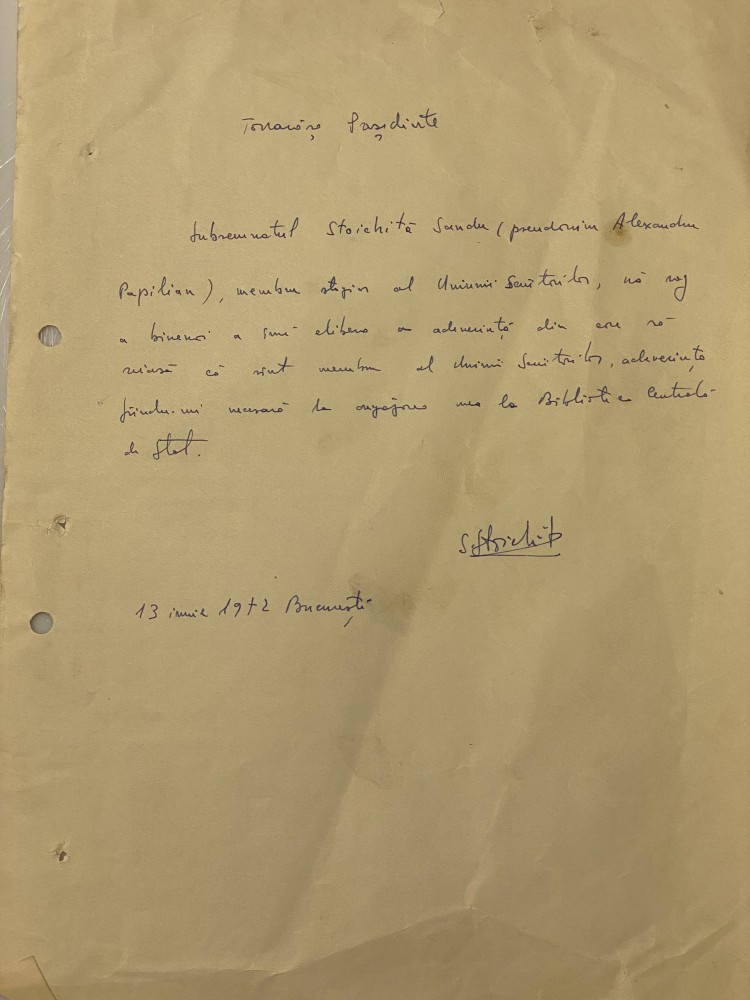 Tovarășe Președinte
Subsemnatul Stoichiță Sandu (pseudonim Alexandru
Papilian), membru stagiar al Uniunii Scriitorilor, vă rog
a binevoi a-mi elibera o adeverință din care să
reiasă că sînt membru al Uniunii Scriitorilor, adeverința
fiindu-mi necesară la angajarea mea la Biblioteca Centrală
de Stat.
S. Stoichiță
13 iunie 1972 București